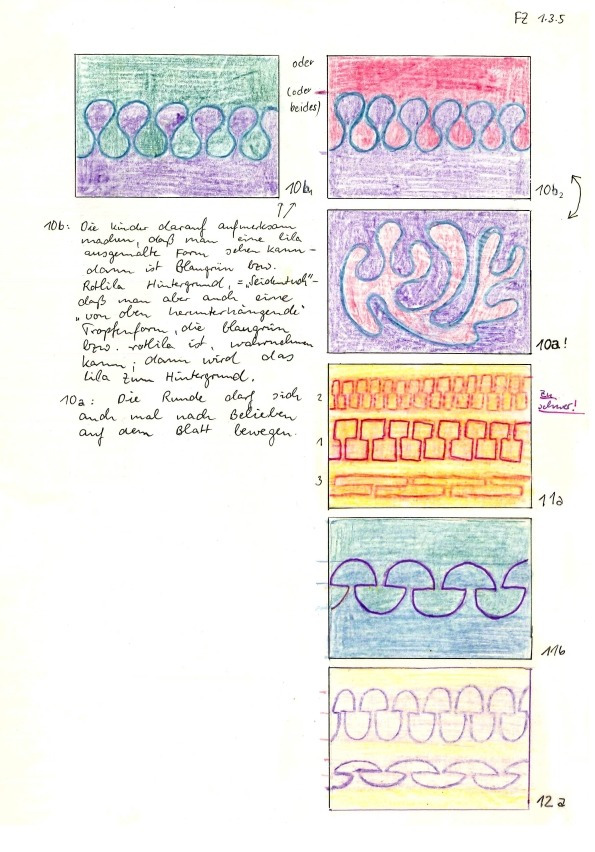 FZ 1.3.5
oder
(oder
beides)
10b₁
10b₂
10b: Die Kinder darauf aufmerksam
machen, daß man eine lila
ausgemalte Form sehen kann -
dann ist Blaugrün bzw.
Rotlila Hintergrund, =
daß man aber auch eine
"von oben herunterhängende"
Tropfenform, die blaugrün
bzw. rotlila ist, wahrnehmen
kann; dann wird das
Lila zum Hintergrund.
10a: Die Runde darf sich
auch mal nach Belieben
auf dem Blatt bewegen.
10a!
2
1
3
schwer!
11a
11b
12a